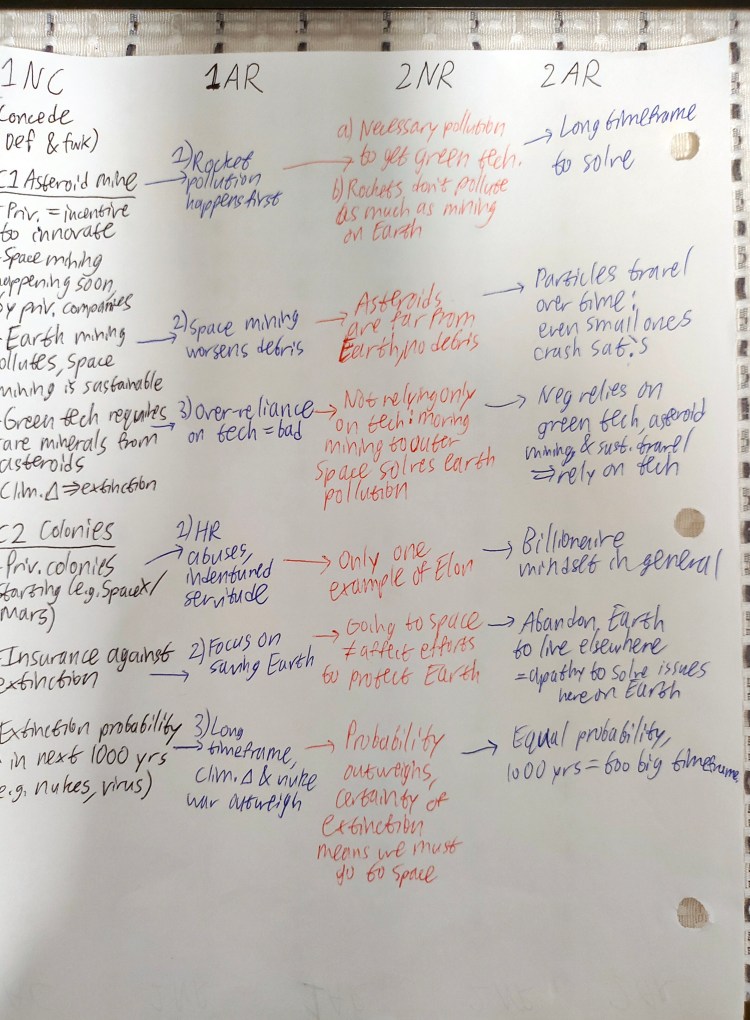 1NC
Concede
Def & fwk)
C1 Asteroid mine
Priv. = incentive
to innovate
Space mining
happening soon,
by priv. companies
Earth mining
pollutes, space
mining is sustainable
Green tech requires
rare minerals from
asteroids
Clim. Δ ⇒ extinction
C2 Colonies
Priv. colonies
starting (e.g. SpaceX/
Mars)
Insurance against
extinction
Extinction probability
in next 1000 yrs
e.g. nukes, virus)
1AR
1) Rocket
pollution
happens first
2) Space mining
worsens debris
3) Over-reliance
on tech = bad
1) HR
abuses,
indentured
servitude
2) Focus on
saving Earth
3) Long
timeframe,
clim. Δ & nuke
war outweigh
2NR
a) Necessary pollution
to get green tech.
b) Rockets don't pollute
as much as mining
on Earth
Asteroids
are far from
Earth, no debris
Not relying only
on tech; moving
mining to outer
space solves earth
pollution
Only one
example of Elon
Going to space
≠ affect efforts
to protect Earth
Probability
outweighs,
certainty of
extinction
means we must
go to space
2AR
→ Long timeframe
to solve
Particles travel
over time;
even small ones
crash sat.'s
Neg relies on
green tech, asteroid
mining, & sust. travel
⇒ rely on tech
Billionaire
mindset in general
Abandon Earth
to live elsewhere
= apathy to solve issues
here on Earth
Equal probability,
1000 yrs = too big timeframe